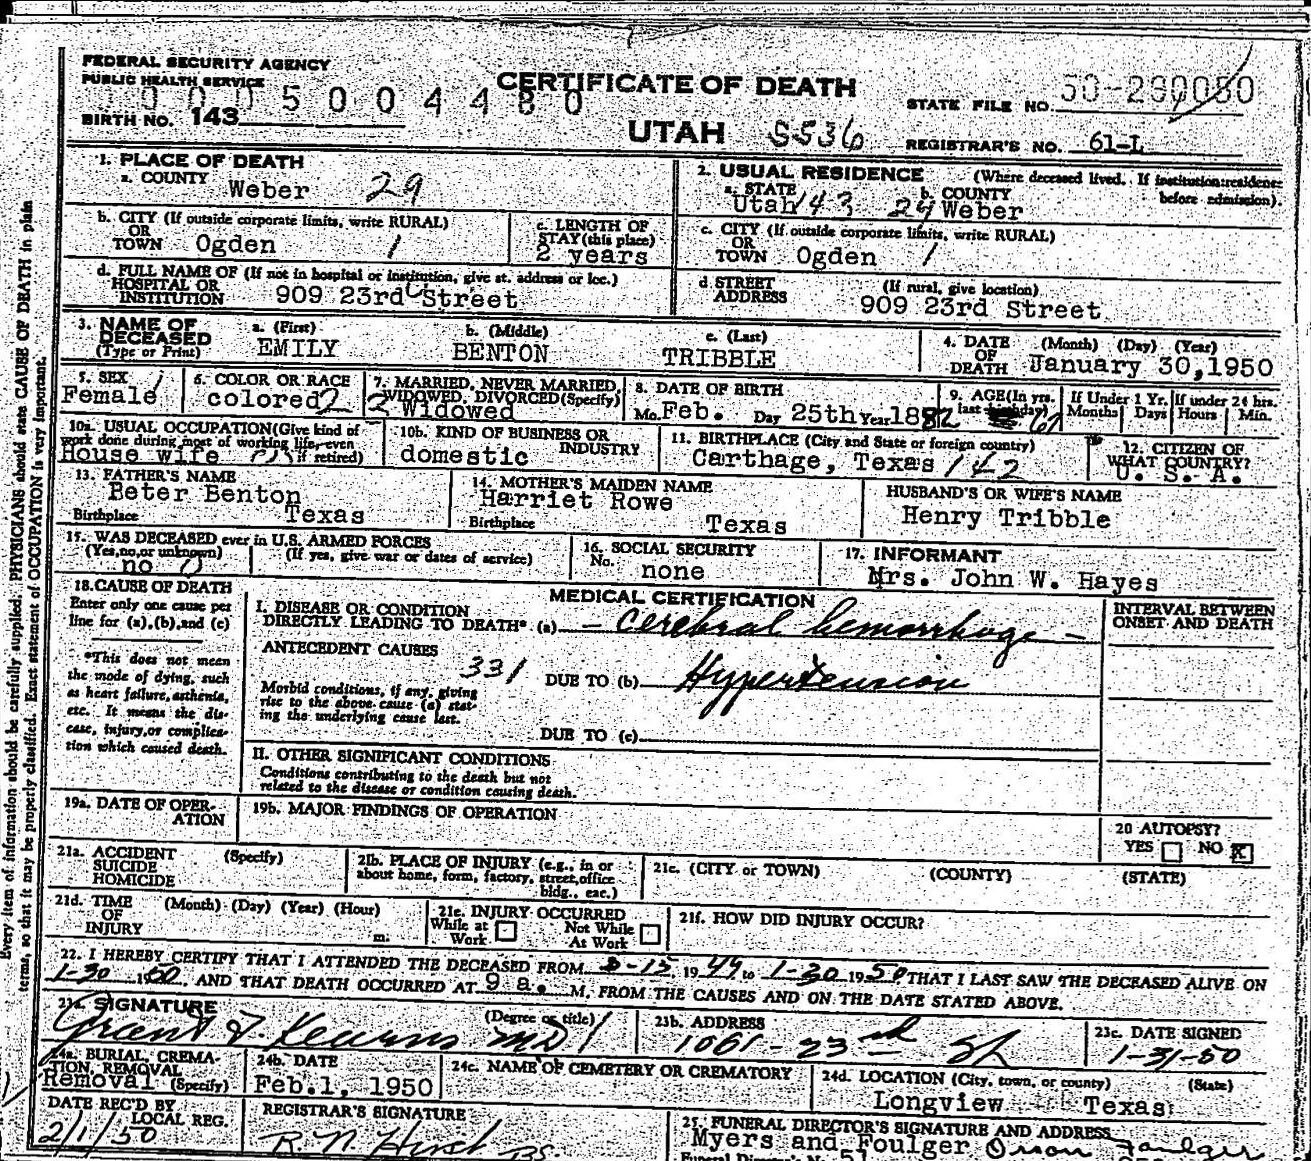 FEDERAL SECURITY AGENCY
PUBLIC HEALTH SERVICE
0005004480
BIRTH NO. 143
CERTIFICATE OF DEATH
UTAH S536
STATE FILE NO.
REGISTRAR'S NO. 61-L
1. PLACE OF DEATH
a. COUNTY Weber 29
2. USUAL RESIDENCE (Where deceased lived. If institution: residence before admission).
a. STATE Utah 143 b. COUNTY 29 Weber
b. CITY (If outside corporate limits, write RURAL) OR TOWN Ogden 1
c. LENGTH OF STAY (this place) 2 years
c. CITY (If outside corporate limits, write RURAL) OR TOWN Ogden 1
d. FULL NAME OF (If not in hospital or institution, give st. address or loc.) HOSPITAL OR INSTITUTION 909 23rd Street
d. STREET ADDRESS (If rural, give location) 909 23rd Street
3. NAME OF DECEASED (Type or Print)
a. (First) EMILY
b. (Middle) BENTON
c. (Last) TRIBBLE
4. DATE OF DEATH (Month) (Day) (Year) January 30,1950
5. SEX Female 1
6. COLOR OR RACE colored 2
7. MARRIED, NEVER MARRIED, WIDOWED, DIVORCED (Specify) 3 Widowed
8. DATE OF BIRTH Mo. Feb. Day 25th Year 1882
9. AGE (In yrs. last birthday) 67
If Under 1 Yr. Months Days
If under 24 hrs. Hours Min.
10a. USUAL OCCUPATION (Give kind of work done during most of working life, even if retired) House wife
10b. KIND OF BUSINESS OR INDUSTRY domestic
11. BIRTHPLACE (City and State or foreign country) Carthage, Texas 142
12. CITIZEN OF WHAT COUNTRY? U. S. A.
13. FATHER'S NAME Peter Benton
Birthplace Texas
14. MOTHER'S MAIDEN NAME Harriet Rowe
Birthplace Texas
HUSBAND'S OR WIFE'S NAME Henry Tribble
15. WAS DECEASED ever in U.S. ARMED FORCES
(Yes, no, or unknown) no 0
(If yes, give war or dates of service)
16. SOCIAL SECURITY No. none
17. INFORMANT Mrs. John W. Hayes
18. CAUSE OF DEATH
Enter only one cause per line for (a), (b), and (c)
*This does not mean the mode of dying, such as heart failure, asthenia, etc. It means the disease, injury, or complication which caused death.
MEDICAL CERTIFICATION
INTERVAL BETWEEN ONSET AND DEATH
I. DISEASE OR CONDITION DIRECTLY LEADING TO DEATH* (a) - cerebral hemorrhage -
ANTECEDENT CAUSES
331
DUE TO (b) Hypertension
Morbid conditions, if any, giving rise to the above cause (a) stating the underlying cause last.
DUE TO (c)
II. OTHER SIGNIFICANT CONDITIONS
Conditions contributing to the death but not related to the disease or condition causing death.
19a. DATE OF OPERATION
19b. MAJOR FINDINGS OF OPERATION
20 AUTOPSY?
YES NO X
21a. ACCIDENT SUICIDE HOMICIDE (Specify)
21b. PLACE OF INJURY (e.g., in or about home, form, factory, street, office bldg., eac.)
21c. (CITY or TOWN) (COUNTY) (STATE)
21d. TIME OF INJURY (Month) (Day) (Year) (Hour) m.
21e. INJURY OCCURRED
While at Work Not While At Work
21f. HOW DID INJURY OCCUR?
22. I HEREBY CERTIFY THAT I ATTENDED THE DECEASED FROM 1949 to 1-30 1950 THAT I LAST SAW THE DECEASED ALIVE ON
1-30 1950, AND THAT DEATH OCCURRED AT 9 a. M. FROM THE CAUSES AND ON THE DATE STATED ABOVE.
SIGNATURE (Degree or title)
Grant F. Kearns MD
23b. ADDRESS 1061-23rd St
23c. DATE SIGNED 1-31-50
24a. BURIAL, CREMATION, REMOVAL (Specify) Removal
24b. DATE Feb.1, 1950
24c. NAME OF CEMETERY OR CREMATORY
24d. LOCATION (City, town, or county) (State)
Longview Texas
DATE REC'D BY LOCAL REG. 2/1/50
REGISTRAR'S SIGNATURE
25. FUNERAL DIRECTOR'S SIGNATURE AND ADDRESS
Myers and Foulger Orson Foulger
Every item of information should be carefully supplied; PHYSICIANS should state CAUSE OF DEATH in plain
terms, so that it may be properly classified. Exact statement of OCCUPATION is very important.